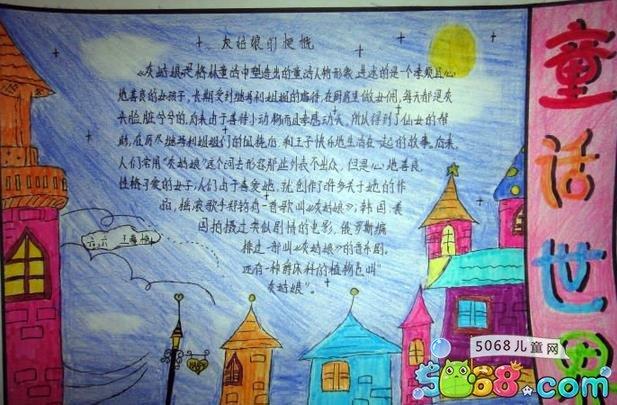 灰姑娘的梗概
《灰姑娘是格林童话中塑造出的童话人物形象,是述的是一个孝顺且心
地善良的女孩子,长期受到继母和姐姐的虐待,在厨房里做女佣,每天都是灰
头脸,脏兮兮的,后来由于喜待小动物而且孝感动天,所以得到了仙女的帮
助,在历尽继母和姐姐们的阻挠后,和王子快乐地生活在一起的故事。后来,
人们常用“灰姑娘”这个词去形容那些外表不出众,但是心地善良,
性格可爱的女子,人们由于喜爱她,就创作了许多关于她的作
品,摇滚歌手郑钧有一首歌叫《灰姑娘》;韩国、美
国拍摄过类似剧情的电影,俄罗斯编
排过一部叫《灰姑娘》的音乐剧。
还有一种舞床科的植物也叫“
灰姑娘”。
童话世界
5068儿童网
5068.com